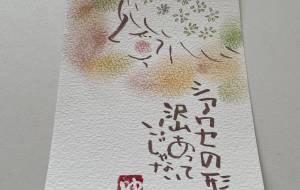 シアワセの形
沢山あって
いいじゃない